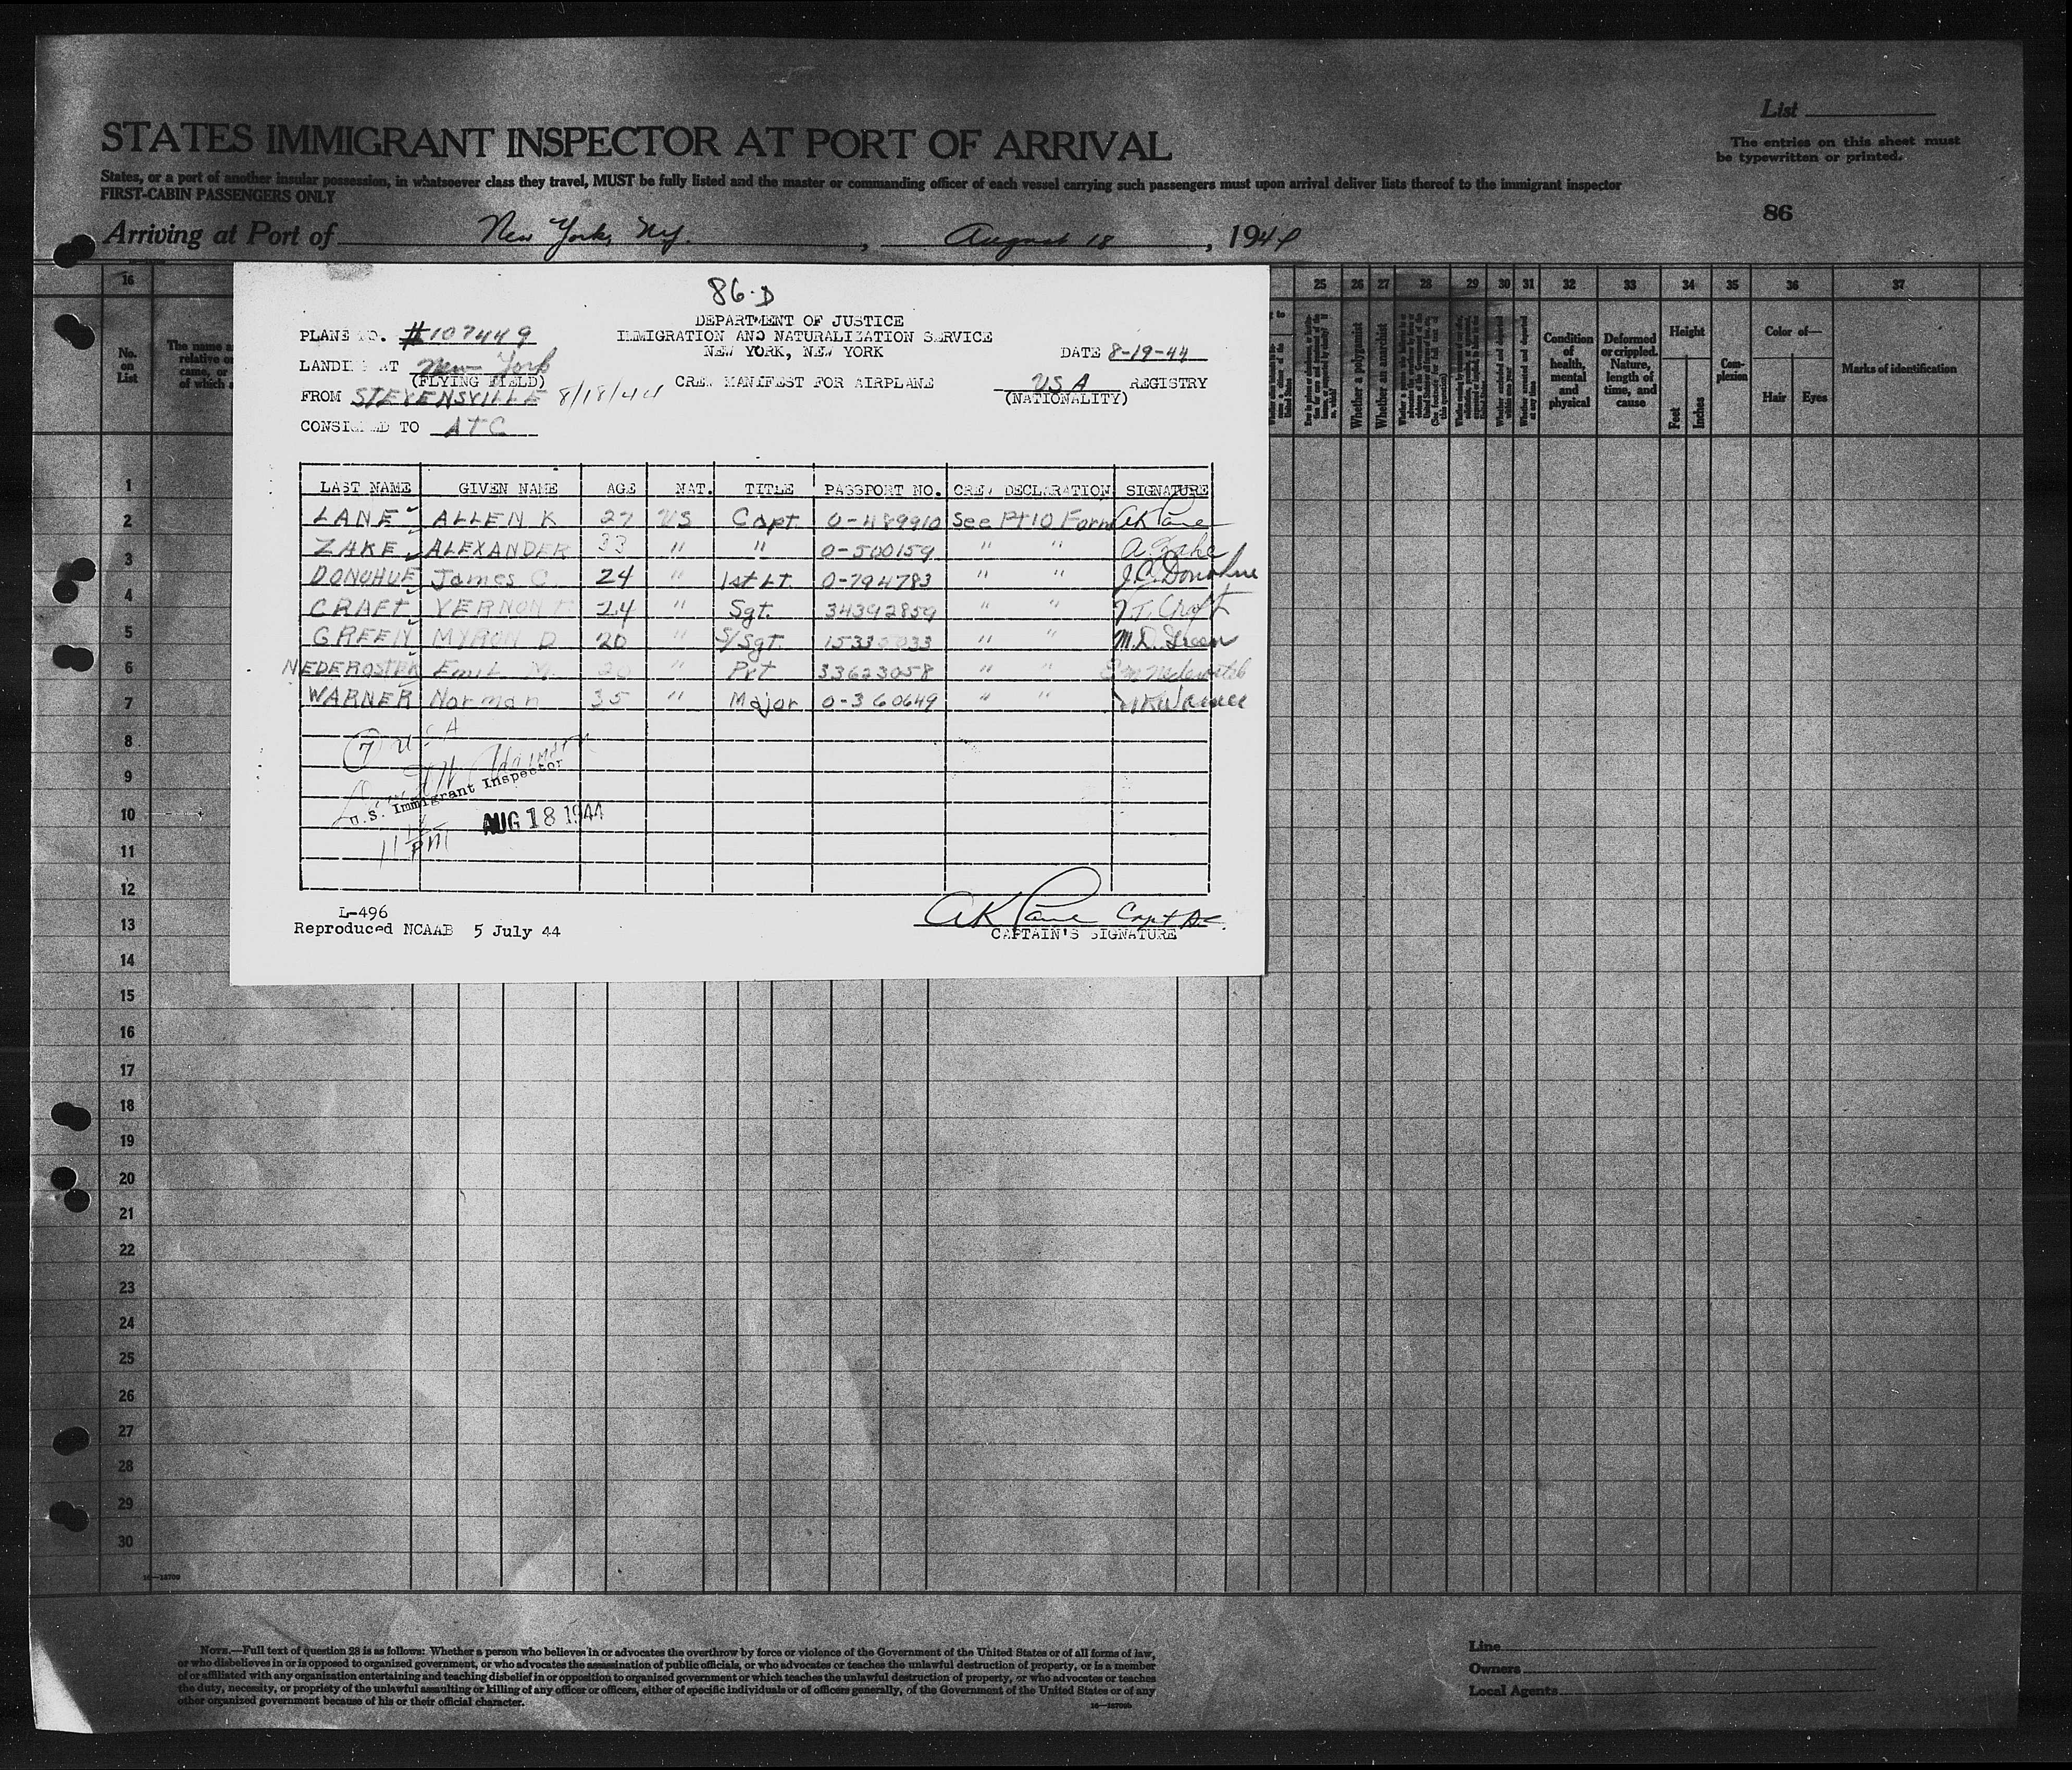 List
STATES IMMIGRANT INSPECTOR AT PORT OF ARRIVAL
The entries on this sheet must
be typewritten or printed.
States, or a port of another insular possession, in whatsoever class they travel, MUST be fully listed and the master or commanding officer of each vessel carrying such passengers must upon arrival deliver lists thereof to the immigrant inspector
FIRST-CABIN PASSENGERS ONLY
86
Arriving at Port of New York, N.Y., August 18, 1944
16 25 26 27 28 29 30 31 32 33 34 35 36 37
No. on List
The name a
relative o
came, or
of which a
Whether a polygamist
Whether an anarchist
Condition of health, mental and physical
Deformed or crippled. Nature, length of time, and cause
Height
Feet
Inches
Com-plexion
Color of—
Hair
Eyes
Marks of identification
86-D
DEPARTMENT OF JUSTICE
IMMIGRATION AND NATURALIZATION SERVICE
NEW YORK, NEW YORK
PLANE NO. #107449
DATE 8-19-44
LANDING AT New York
(FLYING FIELD)
CREW MANIFEST FOR AIRPLANE
USA REGISTRY
(NATIONALITY)
FROM STEVENSVILLE 8/18/44
CONSIGNED TO ATC
LAST NAME GIVEN NAME AGE NAT. TITLE PASSPORT NO. CREW DECLARATION SIGNATURE
LANE ALLEN K 27 US Capt 0-489910 See Pt 10 Form AK Lane
ZAKE ALEXANDER 33 " " 0-500159 " " A. Zake
DONOHUE James C 24 " 1st Lt. 0-794783 " " J.C. Donohue
CRAFT VERNON T 24 " Sgt. 34392859 " " V.T. Craft
GREEN MYRON D 20 " S/Sgt. " " M.D. Green
NEDEROSTEK Emil M. 20 " Pvt 33623058 " "
WARNER Norman 35 " Major 0-360649 " " Warner
7 USA
U.S. Immigrant Inspector
AUG 18 1944
11 PM
L-496
Reproduced NCAAB 5 July 44
AK Lane Capt AC
CAPTAIN'S SIGNATURE
1
2
3
4
5
6
7
8
9
10
11
12
13
14
15
16
17
18
19
20
21
22
23
24
25
26
27
28
29
30
16—18709
NOTE.—Full text of question 28 is as follows: Whether a person who believes in or advocates the overthrow by force or violence of the Government of the United States or of all forms of law,
or who disbelieves in or is opposed to organized government, or who advocates the assassination of public officials, or who advocates or teaches the unlawful destruction of property, or is a member
of or affiliated with any organization entertaining and teaching disbelief in or opposition to organized government or which teaches the unlawful destruction of property, or who advocates or teaches
the duty, necessity, or propriety of the unlawful assaulting or killing of any officer or officers, either of specific individuals or of officers generally, of the Government of the United States or of any
other organized government because of his or their official character.
16—18709b
Line
Owners
Local Agents